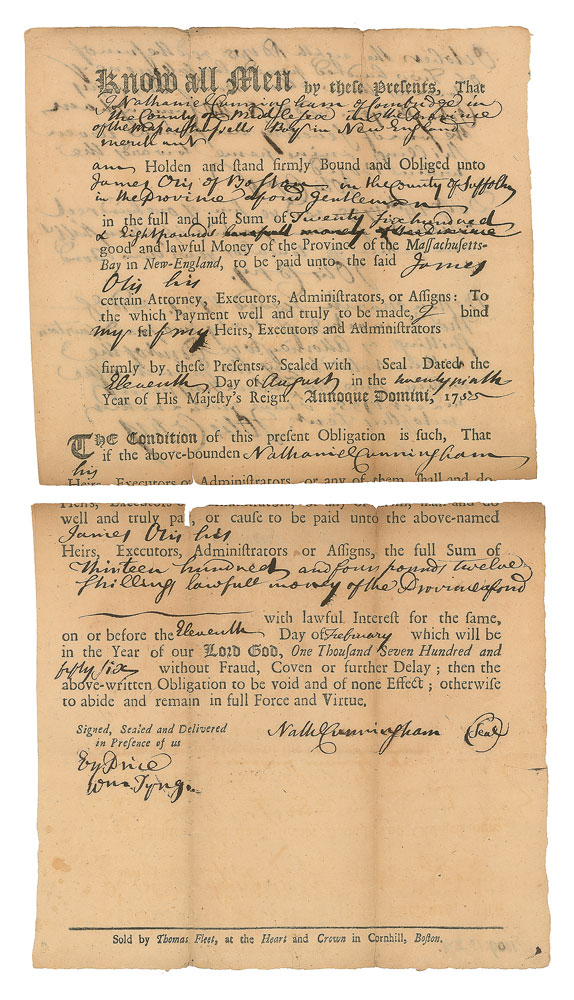 Know all Men by these Presents, That
I Nathaniel Cunningham of Cambridge in
the County of Middlesex in the Province
of the Massachusetts Bay in New England
merchant
am Holden and stand firmly Bound and Obliged unto
James Otis of Boston in the County of Suffolk
in the Province afond Gentleman
in the full and just Sum of Twenty six hundred
& Eight pounds lawfull money of the Province
good and lawful Money of the Province of the Massachusetts-
Bay in New-England, to be paid unto the said James
Otis his
certain Attorney, Executors, Administrators, or Assigns: To
the which Payment well and truly to be made, I bind
my self my Heirs, Executors and Administrators
firmly by these Presents. Sealed with Seal Dated the
Eleventh Day of August in the twenty ninth
Year of His Majesty's Reign. Annoque Domini, 1755
THE Condition of this present Obligation is such, That
if the above-bounden Nathaniel Cunningham
his
Heirs, Executors or Administrators, or any of them, shall and do
Heirs, Executors or Administrators, or any of them, shall and do
well and truly pay, or cause to be paid unto the above-named
James Otis his
Heirs, Executors, Administrators or Assigns, the full Sum of
Thirteen hundred and four pounds twelve
shilling lawfull money of the Province afond
with lawful Interest for the same,
on or before the Eleventh Day of February which will be
in the Year of our LORD GOD, One Thousand Seven Hundred and
fifty six without Fraud, Coven or further Delay; then the
above-written Obligation to be void and of none Effect; otherwise
to abide and remain in full Force and Virtue.
Signed, Sealed and Delivered
in Presence of us
Nath Cunningham Seal
Ez Price
Wm Tyng
Sold by Thomas Fleet, at the Heart and Crown in Cornhill, Boston.